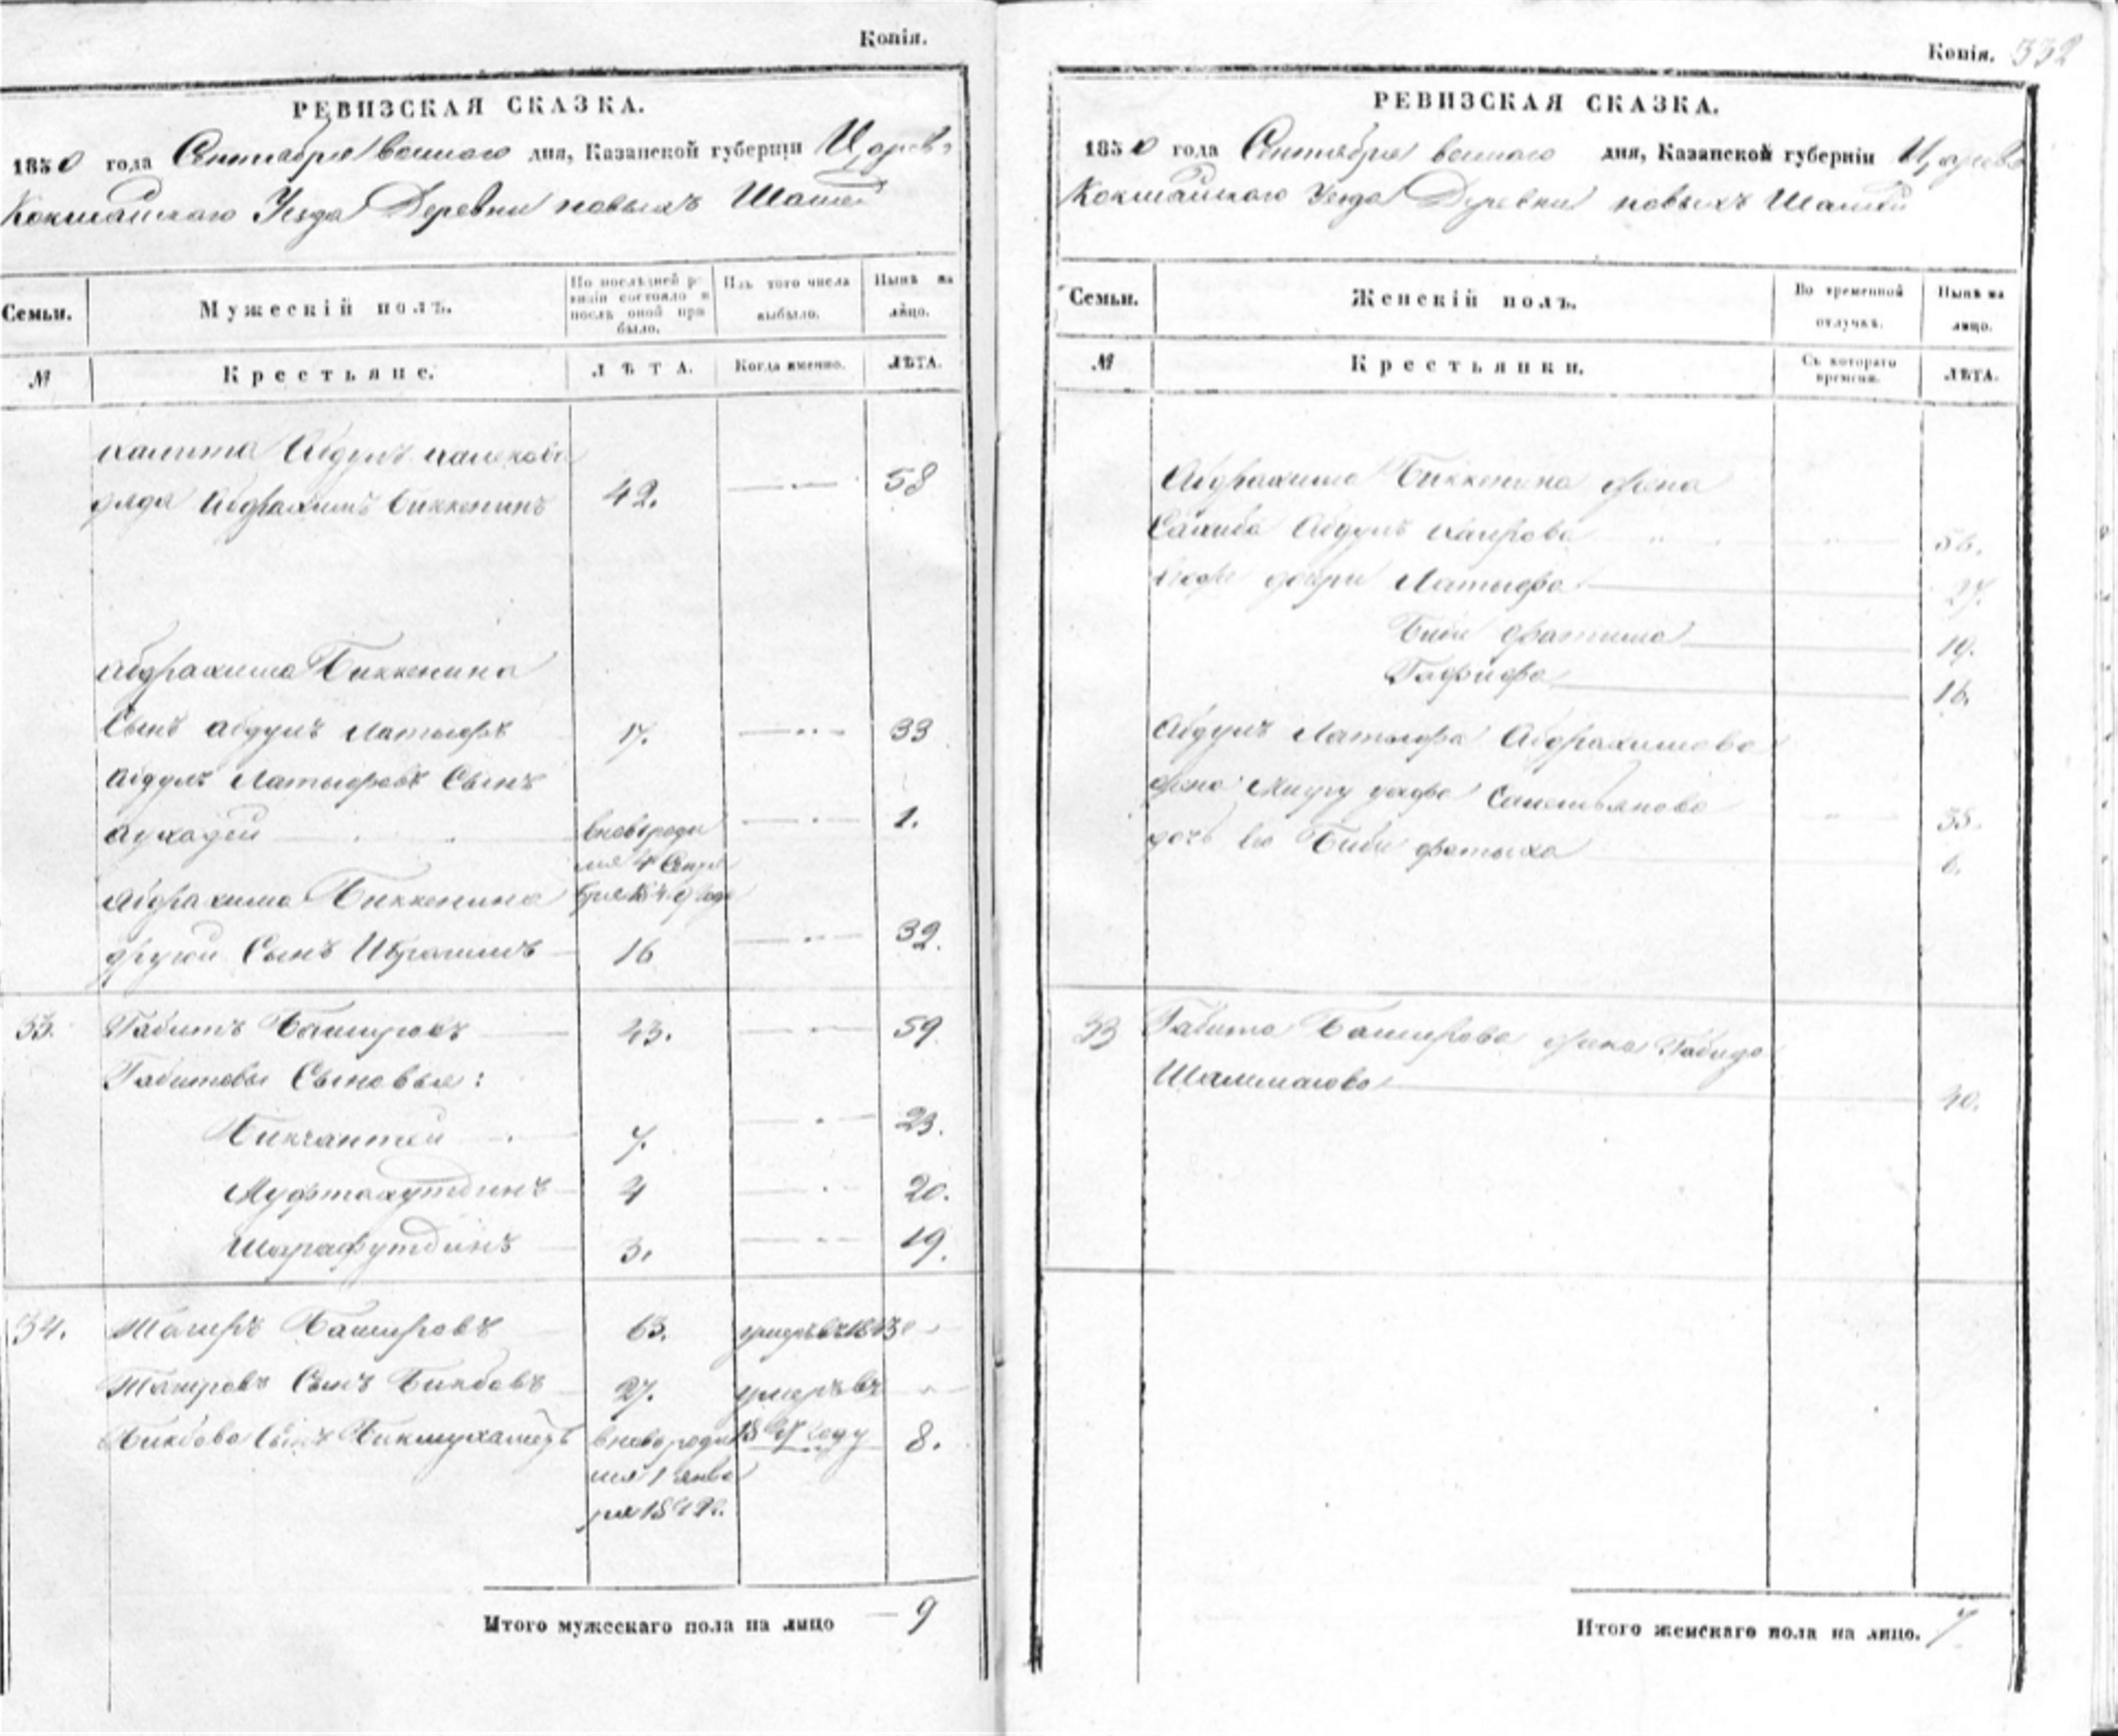 Копія.
РЕВИЗСКАЯ СКАЗКА.
1850 года Сентября дня, Казанской губерніи Царево
Кокшайскаго Уезда Деревни новыхъ
Семьи.
Мужескій полъ.
По послѣдней ре-
визіи состояло и
послѣ оной при-
было.
Изъ того числа
выбыло.
Нынѣ на
лицо.
№
Крестьяне.
ЛѢТА.
Когда именно.
ЛѢТА.
Абдулъ
дядя Абдрахимъ Биккенинъ 42. 58
Абдрахима Биккенина
Сынъ Абдулъ Латыфъ 17. 33
Абдулъ Латыфовъ Сынъ
вновьроди 1.
лся 4 Сентя
бря 1849 года
Абдрахима Биккенина
другой Сынъ Ибрагимъ 16 32.
33. Габитъ Башировъ 43. 59
Габитовы Сыновья:
7. 23.
Муфтахутдинъ 4 20.
Шарафутдинъ 3. 19.
34. Тагиръ Башировъ 63. умеръ въ 1843
Тагировъ Сынъ Бикбовъ 27. умеръ въ
Бикбова Сынъ Бикмухаметъ вновь роди году 8.
лся 1 янва
ря 1842 г.
Итого мужескаго пола на лицо 9
Копія. 332
РЕВИЗСКАЯ СКАЗКА.
1850 года Сентября дня, Казанской губерніи Царево
Кокшайскаго Уезда Деревни новыхъ
Семьи.
Женскій полъ.
Во временной
отлучкѣ.
Нынѣ на
лицо.
№
Крестьянки.
Съ котораго
времени.
ЛѢТА.
Абдрахима Биккенина жена
Абдулъ 56.
дочери Латыфа 27.
Биби фатима 19.
Гафифа 16.
Абдулъ Латыфа Абдрахимова
жена 35.
дочь ея Биби фатыха 6.
33 Габита Баширова жена Габида
40.
Итого женскаго пола на лицо. 7